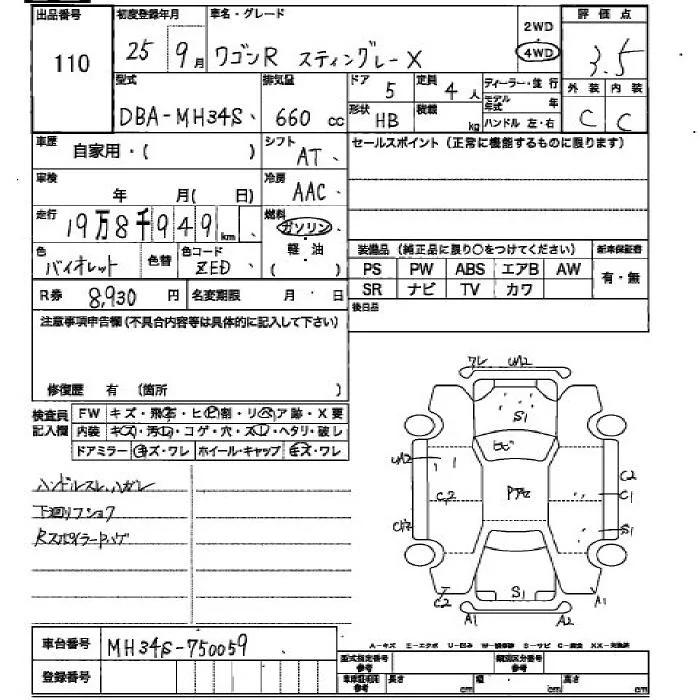 出品番号 初度登録年月 車名・グレード 2WD 評価点
110 25 9月 ワゴンR スティングレーX 4WD 3.5
型式 排気量 ドア 5 定員 4人 ディーラー・並行 外装 内装
DBA-MH34S 660 cc 形状 HB 積載 kg モデル年式 年 C C
ハンドル 左・右
車歴 自家用・( ) シフト AT セールスポイント (正常に機能するものに限ります)
車検 年 月( 日) 冷房 AAC
走行 19万8千949 km 燃料 ガソリン
軽油
色 バイオレット 色替 色コード ZED ( ) 装備品 (純正品に限り○をつけてください) 新車保証書
PS PW ABS エアB AW 有・無
R券 8,930 円 名変期限 月 日 SR ナビ TV カワ
注意事項申告欄(不具合内容等は具体的に記入して下さい) 後日品
修復歴 有 (箇所 )
検査員記入欄 FW キズ・飛石・ヒビ割・リペア跡・X要
内装 キズ・汚れ・コゲ・穴・スレ・ヘタリ・破し
ドアミラー キズ・ワレ ホイール・キャップ キズ・ワレ
ハンドルスレ、ハガレ
下廻リフショク
Rスポイラードハゲ
ワレ
S1
ヒビ
C2
C2
C1
S1
S1
C2
A1
A1 A2
車台番号 MH34S-750059
登録番号
A-キズ E-エクボ U-凹み S-サビ C-腐食 XX-交換済
型式指定番号参考 類別区分番号参考
車庫証明用参考 長さ cm 幅 cm 高さ cm